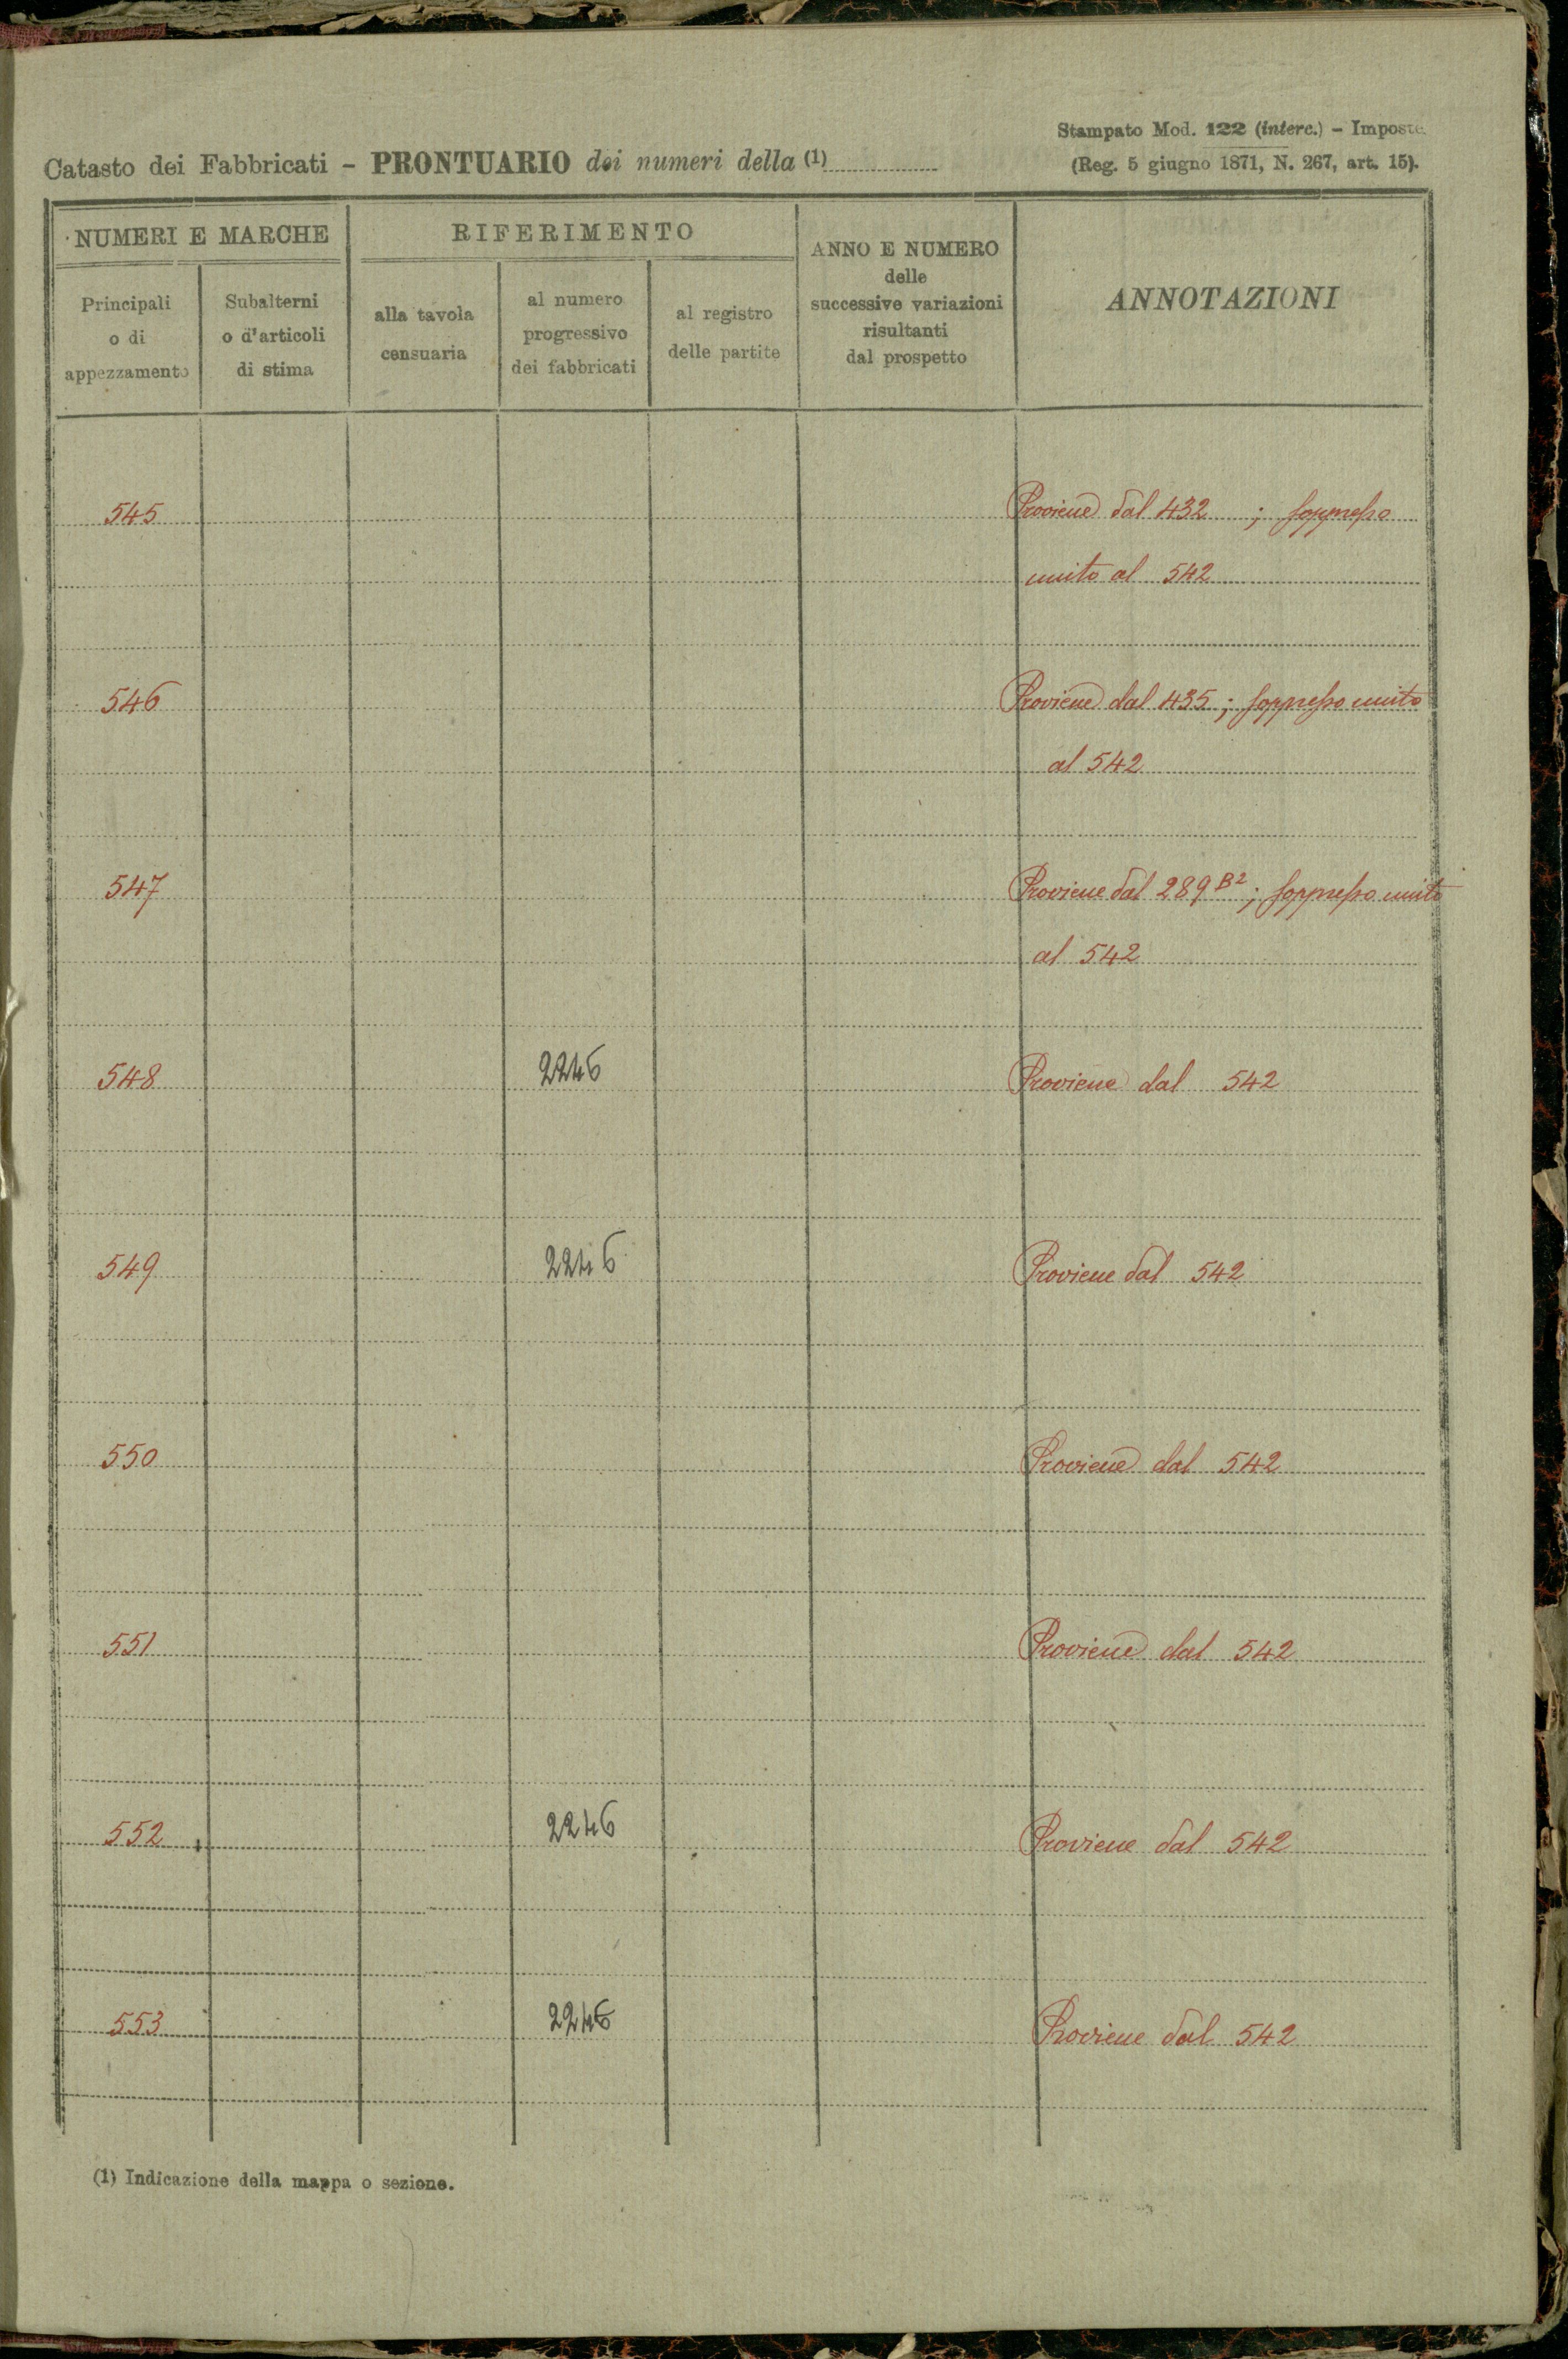 Stampato Mod. 122 (interc.) - Imposte
Catasto dei Fabbricati - PRONTUARIO dei numeri della (1)
(Reg. 5 giugno 1871, N. 267, art. 15).
NUMERI E MARCHE
RIFERIMENTO
ANNO E NUMERO
delle
successive variazioni
risultanti
dal prospetto
ANNOTAZIONI
Principali
o di
appezzamento
Subalterni
o d'articoli
di stima
alla tavola
censuaria
al numero
progressivo
dei fabbricati
al registro
delle partite
545 Proviene dal 432 ; soppresso
unito al 542
546 Proviene dal 435 ; soppresso unito
al 542
547 Proviene dal 289 B2 ; soppresso unito
al 542
548 2246 Proviene dal 542
549 2246 Proviene dal 542
550 Proviene dal 542
551 Proviene dal 542
552 2246 Proviene dal 542
553 2246 Proviene dal 542
(1) Indicazione della mappa o sezione.